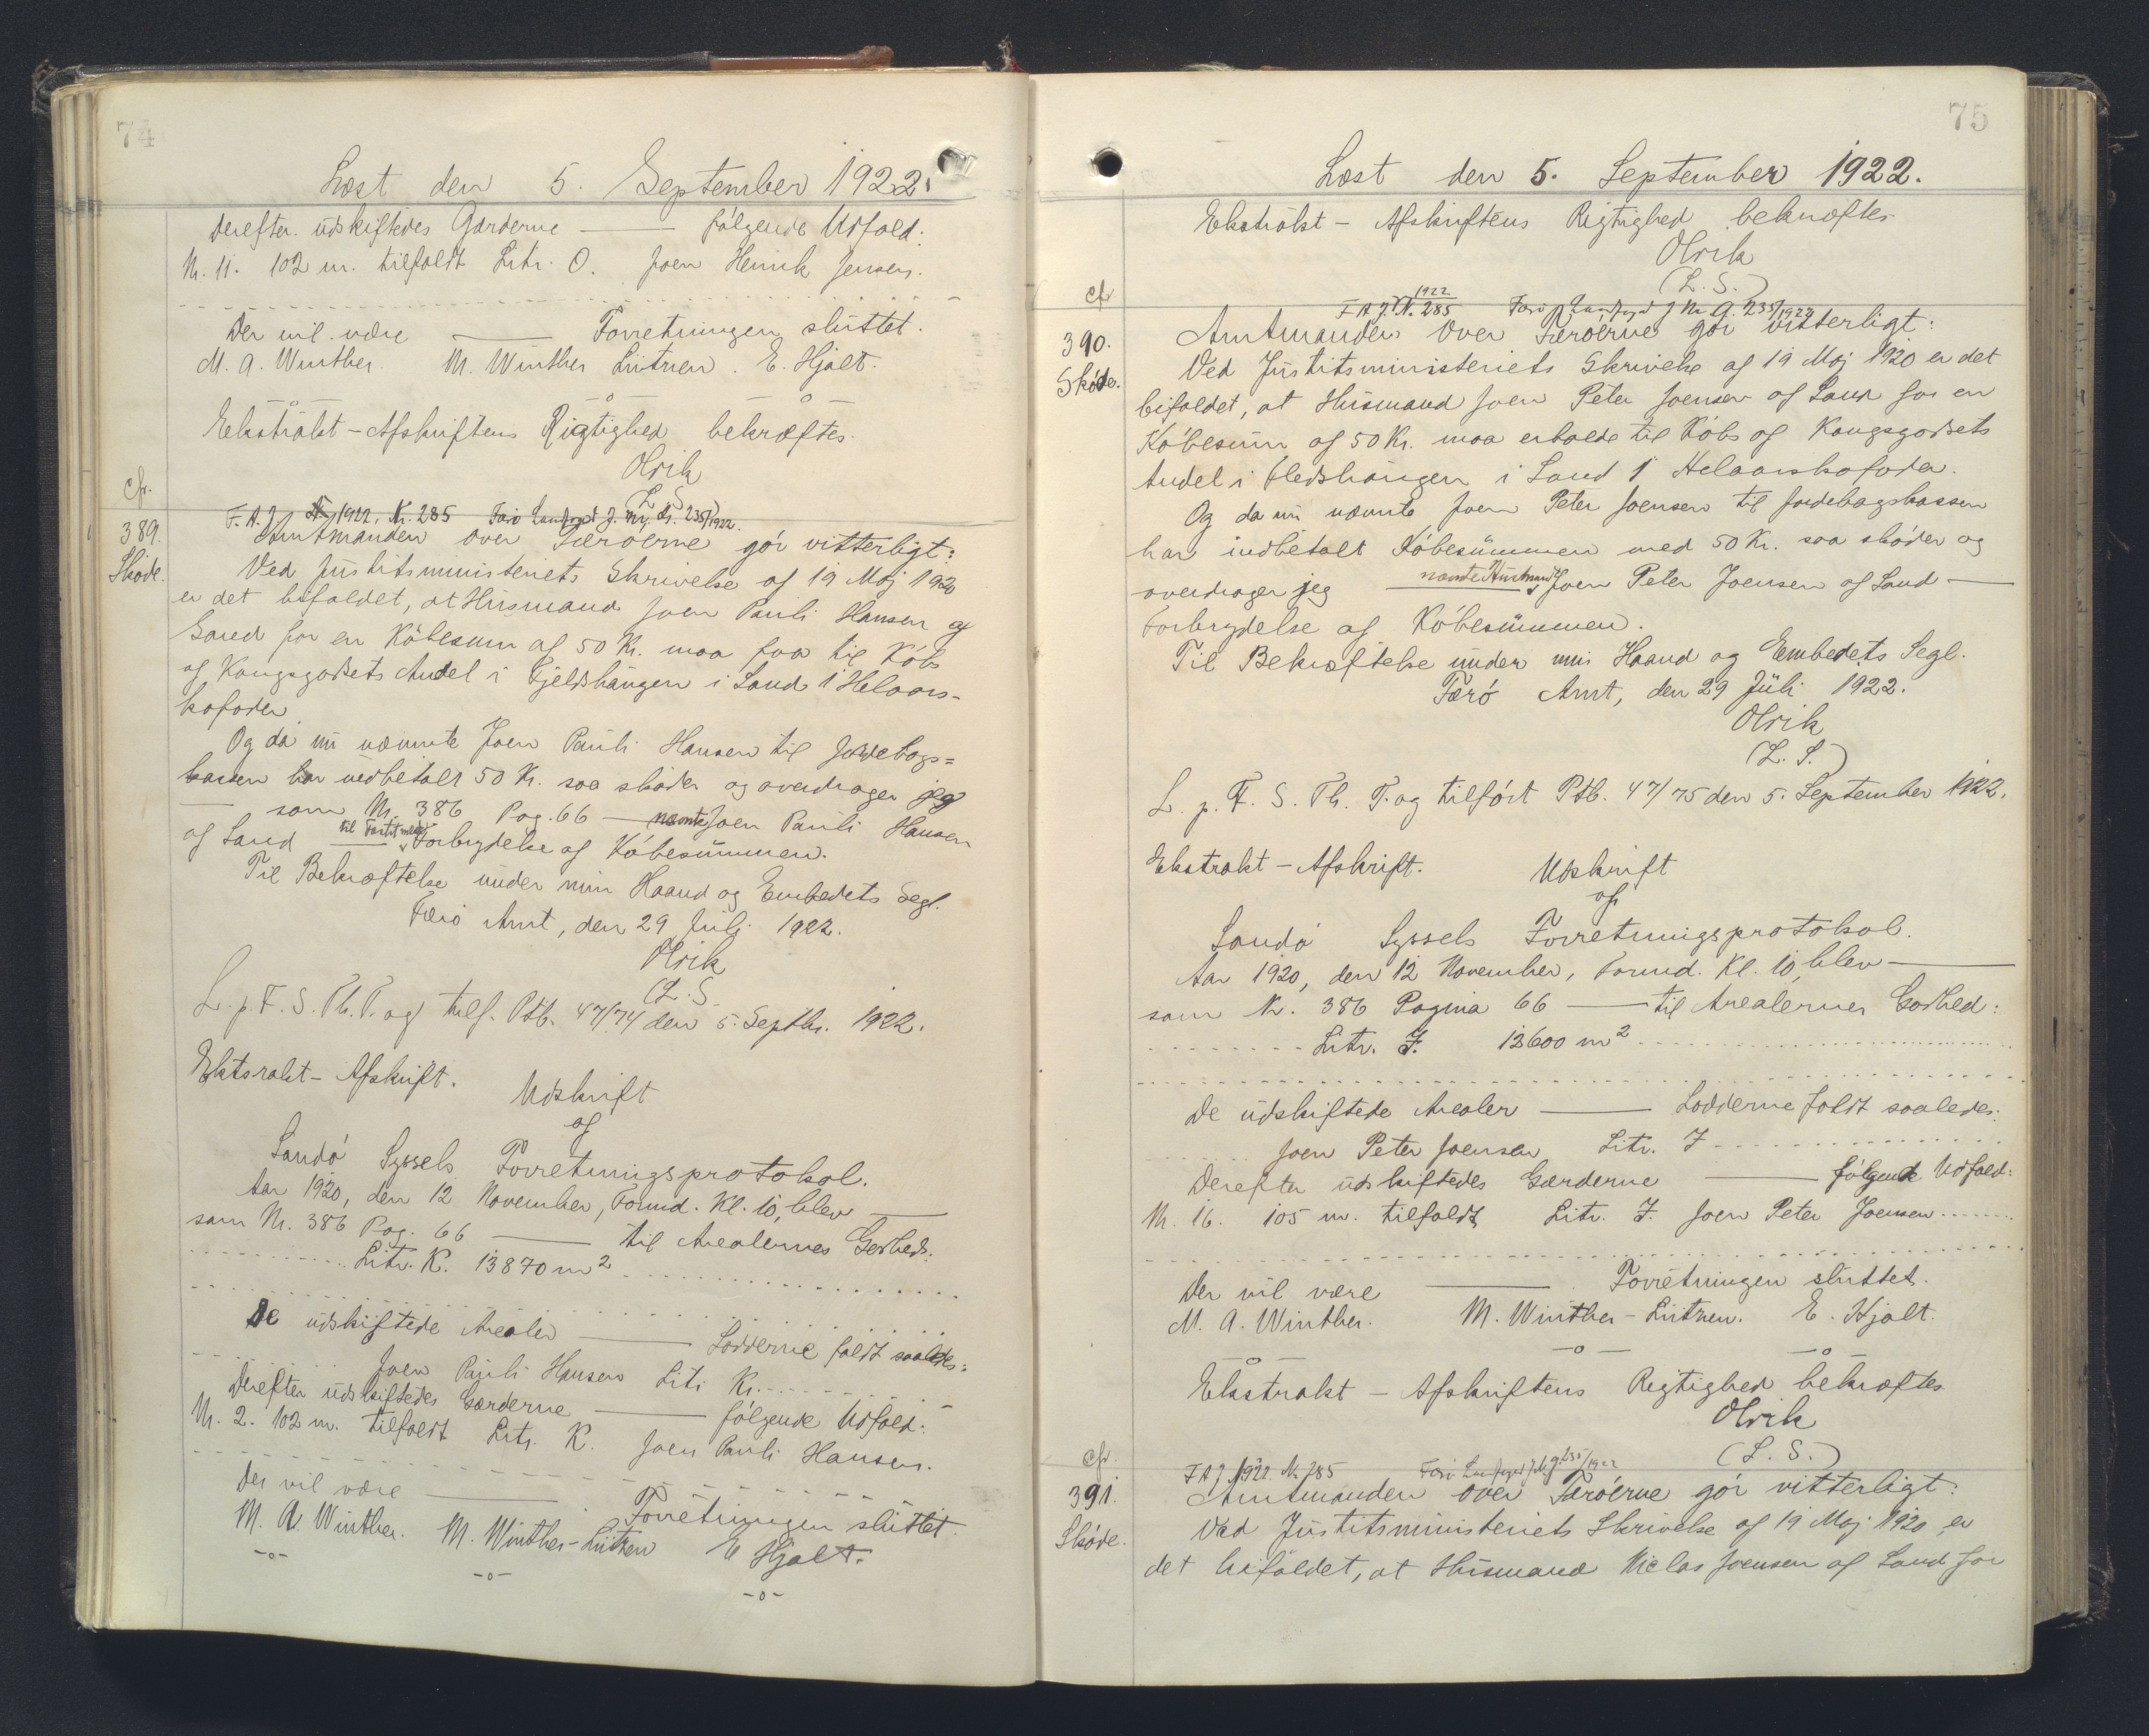 74
Læst den 5. September 1922.
Derefter udskiftedes Gærderne ——— følgende Udfald:
Nr. 11. 102 m. tilfaldt Litr. O. Joen Henrik Jensen.
Der vil være ——— Forretningen sluttet.
M. A. Winther. M. Winther Lützen. E. Hjalt.
Ekstrakt-Afskriftens Rigtighed bekræftes.
Olrik
L S
cfr.
F. A. J. 1922, Nr. 285 Færø J. Nr. 235/1922.
389. Amtmanden over Færøerne gör vitterligt:
Skøde. Ved Justitsministeriets Skrivelse af 19 Maj 1920
er det bifaldet, at Husmand Joen Pauli Hansen af
Sand for en Købesum af 50 Kr. maa faa til Købs
af Kongsgodsets Andel i Fjeldshaugen i Sand 1 Helaars-
kofoder
Og da nu nævnte Joen Pauli Hansen til Jordebogs=
kassen har indbetalt 50 Kr. saa skøder og overdrager jeg
—— som Nr. 386 Pag. 66 — nævnte Joen Pauli Hansen
af Sand —— til Fortit med Forbrydelse af Købesummen.
Til Bekræftelse under min Haand og Embedets Segl.
Færø Amt, den 29 Juli 1922.
Olrik
(L. S.
L. p. F. S. Th. T. og tilf. Ptb. 47/74 den 5. Septbr. 1922.
Ekstrakt-Afskrift.
Udskrift
af
Sandø Syssels Forretningsprotokol.
Aar 1920, den 12 November, Formd. Kl. 10, blev ——
som Nr. 386 Pag. 66 ——— til Arealernes Godhed:
Litr. K. 13870 m²
De udskiftede Arealer ——— Lodderne faldt saaledes:
Joen Pauli Hansen Litr K.
Derefter udskiftedes Gærderne ——— følgende Udfald:
Nr. 2. 102 m. tilfaldt Litr. K. Joen Pauli Hansen.
Der vil være ——— Forretningen sluttet.
M. A. Winther. M. Winther-Lützen E Hjalt.
-o- -o- -o-
75
Læst den 5. September 1922.
Ekstrakt-Afskriftens Rigtighed bekræftes
Olrik
(L. S.)
cfr
F A J 1922 N. 285 Færø J Nr 235/1922
390. Amtmanden over Færøerne gör vitterligt:
Skøde. Ved Justitsministeriets Skrivelse af 19 Maj 1920 er det
bifaldet, at Husmand Joen Peter Joensen af Sand for en
Købesum af 50 Kr. maa erholde til Købs af Kongsgodsets
Andel i Fledshaugen i Sand 1 Helaarskofoder.
Og da nu nævnte Joen Peter Joensen til Jordebogskassen
har indbetalt Købesummen med 50 Kr. saa skøder og
overdrager jeg ——— nævnte Husmand Joen Peter Joensen af Sand ——
Forbrydelse af Købesummen.
Til Bekræftelse under min Haand og Embedets Segl.
Færø Amt, den 29 Juli 1922.
Olrik
(L. S.)
L. p. F. S. Th. T. og tilført Ptb. 47/75 den 5. September 1922.
Ekstrakt-Afskrift.
Udskrift
af
Sandø Syssels Forretningsprotokol.
Aar 1920, den 12 November, Formd. Kl. 10, blev ———
som Nr. 386 Pagina 66 —— til Arealernes Godhed:
Litr. J. 12600 m²
De udskiftede Arealer ——— Lodderne faldt saaledes:
Joen Peter Joensen Litr. J
Derefter udskiftedes Gærderne ——— følgende Udfald:
Nr. 16. 105 m. tilfaldt Litr. J. Joen Peter Joensen
Der vil være ——— Forretningen sluttet.
M. A. Winther. M. Winther-Lützen. E. Hjalt.
-o- -o- -o-
Ekstrakt-Afskriftens Rigtighed bekræftes
Olrik
(L. S.)
cfr.
F A J 1922 N. 285 Færø 235/1922
391. Amtmanden over Færøerne gör vitterligt:
Skøde. Ved Justitsministeriets Skrivelse af 19 Maj 1920 er
det bifaldet, at Husmand Niclas Joensen af Sand for